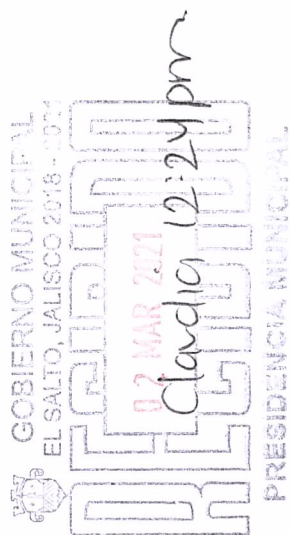 GOBIERNO MUNICIPAL
EL SALTO, JALISCO 2018 - 2021
RECIBIDO
02 MAR 2021
Claudia 12:24 pm
PRESIDENCIA MUNICIPAL